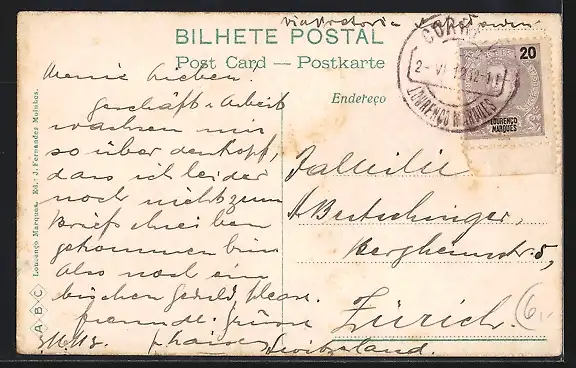 via Pretoria
BILHETE POSTAL
Post Card — Postkarte
Endereço
CORREIO
2-VI
LOURENÇO MARQUES
20
LOURENÇO
MARQUES
Meine Lieben.
Geschäft & Arbeit
wachsen mir
so über den Kopf,
dass ich leider
noch nicht zum
Briefschreiben
gekommen bin
Also noch ein
bischen Geduld, please.
freundl. Grüsse
Familie
A. Bertschinger,
Bergheimstr 5,
Zürich.
Switzerland.
6.-
A B C
Lourenço Marques. Ed.: J. Fernandes Moinhos.